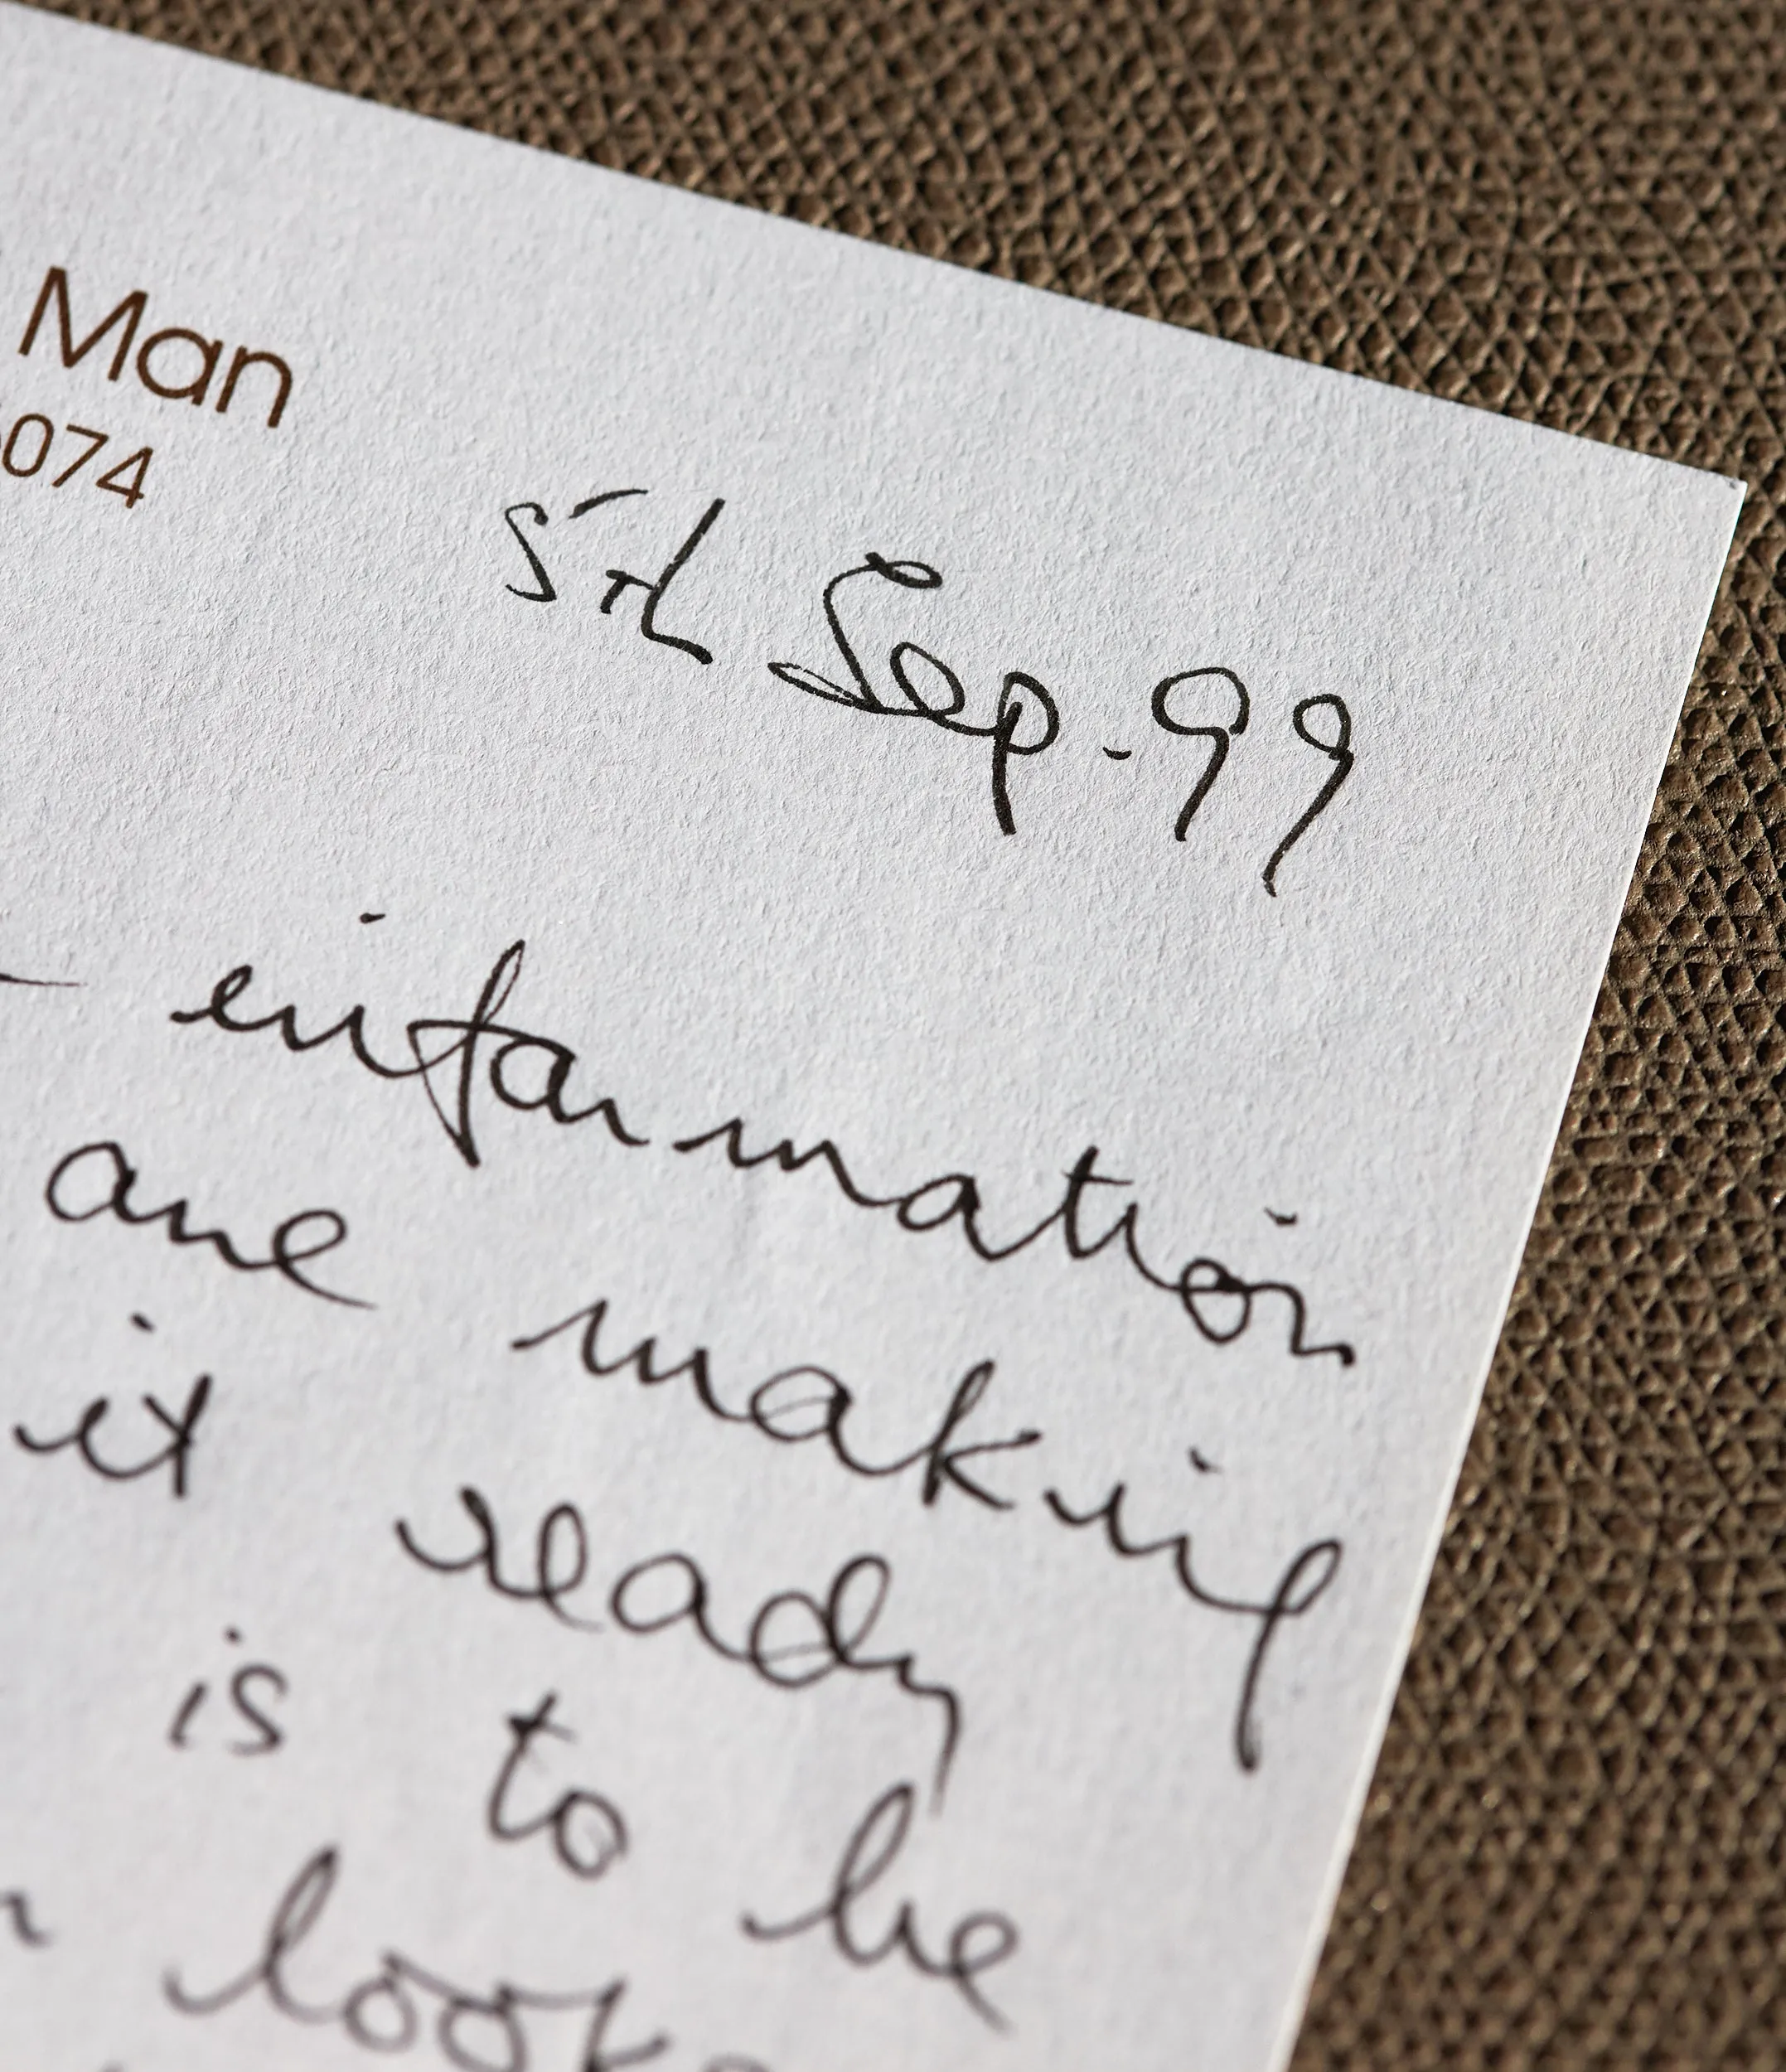 Man
074
5th Sep. 99
information
are making
it ready
is to be
look